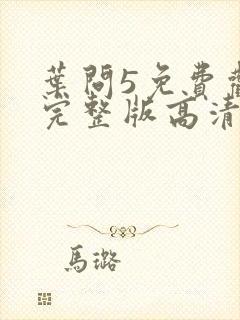 葉問5免費
完整版高清
馬璐